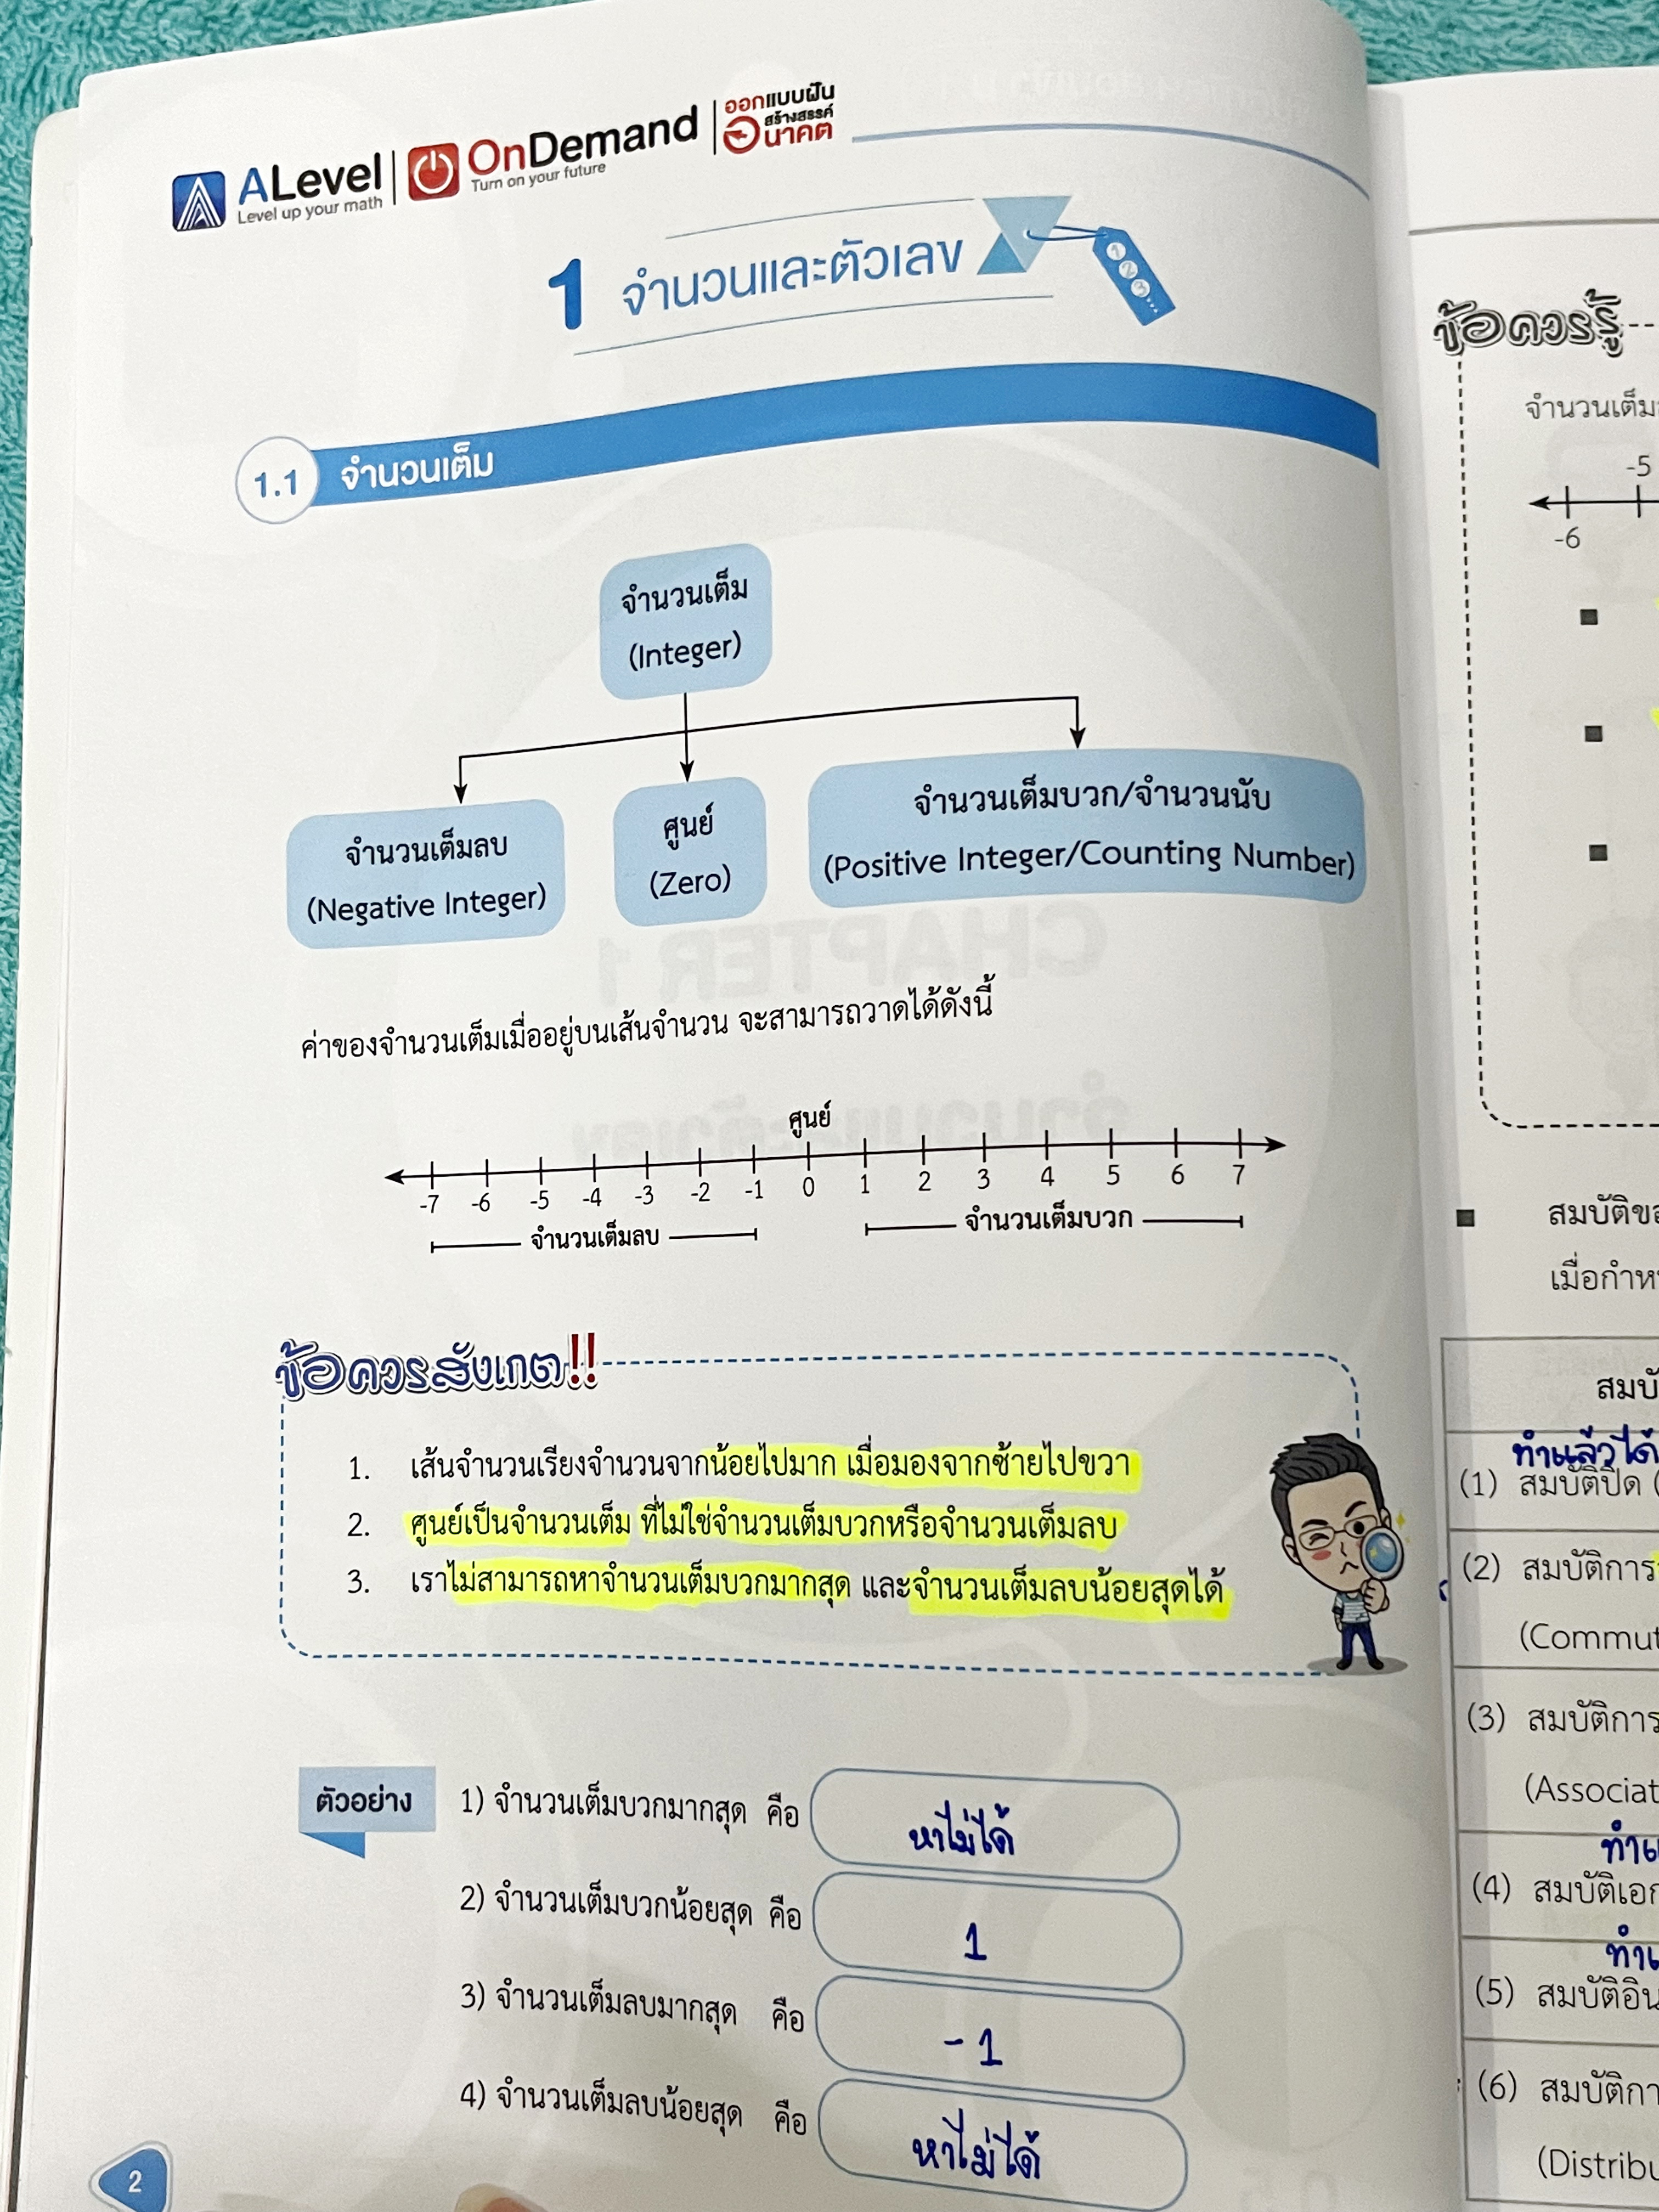 ALevel
Level up your math
OnDemand
Turn on your future
ออกแบบฝัน
สร้างสรรค์
อนาคต
1 จำนวนและตัวเลข
1 2 3 ...
1.1 จำนวนเต็ม
จำนวนเต็ม
(Integer)
จำนวนเต็มลบ
(Negative Integer)
ศูนย์
(Zero)
จำนวนเต็มบวก/จำนวนนับ
(Positive Integer/Counting Number)
ค่าของจำนวนเต็มเมื่ออยู่บนเส้นจำนวน จะสามารถวาดได้ดังนี้
ศูนย์
-7 -6 -5 -4 -3 -2 -1 0 1 2 3 4 5 6 7
จำนวนเต็มลบ จำนวนเต็มบวก
ข้อควรสังเกต!!
1. เส้นจำนวนเรียงจำนวนจากน้อยไปมาก เมื่อมองจากซ้ายไปขวา
2. ศูนย์เป็นจำนวนเต็ม ที่ไม่ใช่จำนวนเต็มบวกหรือจำนวนเต็มลบ
3. เราไม่สามารถหาจำนวนเต็มบวกมากสุด และจำนวนเต็มลบน้อยสุดได้
ตัวอย่าง 1) จำนวนเต็มบวกมากสุด คือ หาไม่ได้
2) จำนวนเต็มบวกน้อยสุด คือ 1
3) จำนวนเต็มลบมากสุด คือ -1
4) จำนวนเต็มลบน้อยสุด คือ หาไม่ได้
2
ข้อควรรู้
จำนวนเต็ม
-5
-6
สมบัติขอ
เมื่อกำห
สมบั
ทำแล้วได้
(1) สมบัติปิด (
(2) สมบัติการ
(Commut
(3) สมบัติการ
(Associat
(4) สมบัติเอก
(5) สมบัติอิน
(6) สมบัติกา
(Distribu